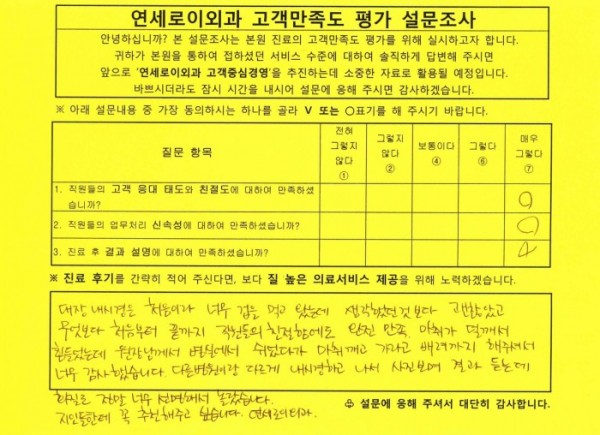 연세로이외과 고객만족도 평가 설문조사
안녕하십니까? 본 설문조사는 본원 진료의 고객만족도 평가를 위해 실시하고자 합니다.
귀하가 본원을 통하여 접하셨던 서비스 수준에 대하여 솔직하게 답변해 주시면
앞으로 '연세로이외과 고객중심경영'을 추진하는데 소중한 자료로 활용될 예정입니다.
바쁘시더라도 잠시 시간을 내시어 설문에 응해 주시면 감사하겠습니다.
※ 아래 설문내용 중 가장 동의하시는 하나를 골라 V 또는 ○표기를 해 주시기 바랍니다.
질문 항목 전혀 그렇지 않다 ① 그렇지 않다 ② 보통이다 ④ 그렇다 ⑥ 매우 그렇다 ⑦
1. 직원들의 고객 응대 태도와 친절도에 대하여 만족하셨
습니까?
2. 직원들의 업무처리 신속성에 대하여 만족하셨습니까?
3. 진료 후 결과 설명에 대하여 만족하셨습니까?
※ 진료 후기를 간략히 적어 주신다면, 보다 질 높은 의료서비스 제공을 위해 노력하겠습니다.
대장 내시경을 처음이라 너무 겁을 먹고 왔는데 생각했던것 보다 괜찮았고
무엇보다 처음부터 끝까지 직원들의 친절함에도 완전 만족. 마취가 덜깨서
힘들었는데 원장님께서 병원에서 쉬었다가 마취깨고 가라고 배려까지 해주셔서
너무 감사했습니다. 다른병원이랑 다르게 내시경하고 나서 사진보며 결과 듣는데
하나 너무 설명해서 좋았습니다.
지인들한테 꼭 추천해주고 싶습니다. 연세로이외과.
♧ 설문에 응해 주셔서 대단히 감사합니다.